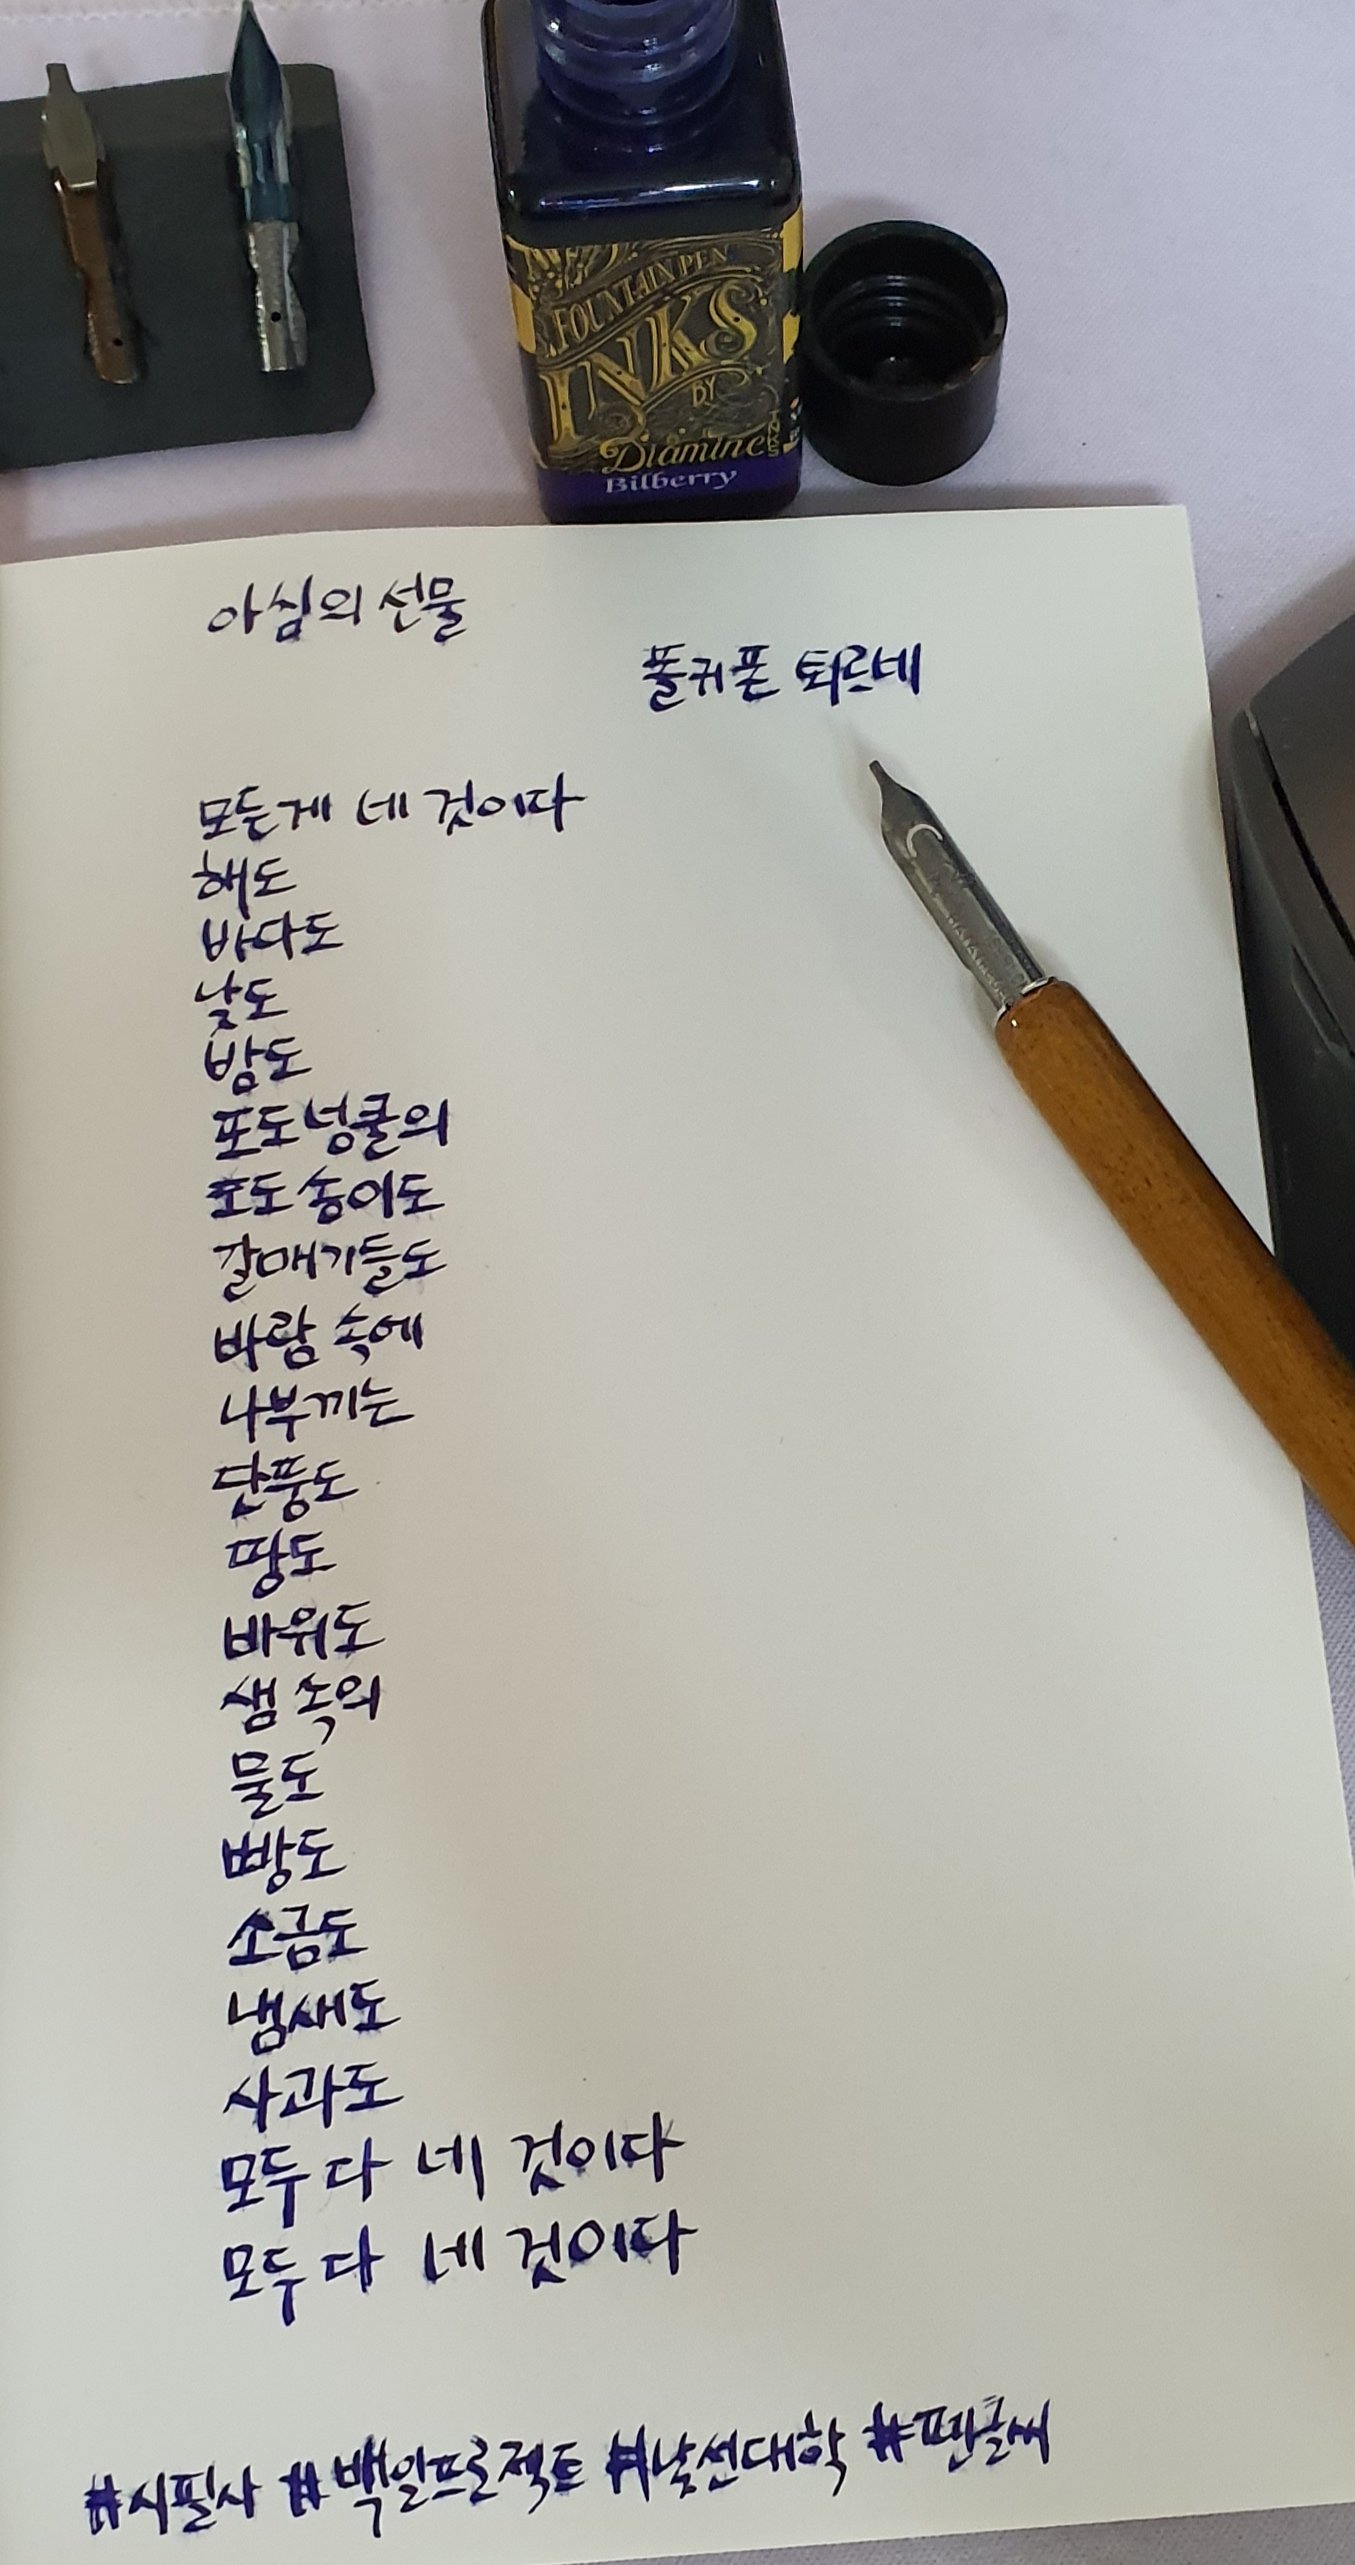 FOUNTAIN PEN
INKS
BY
Diamine
INKS
Bilberry
아침의 선물
폴귀폰 퇴르네
모든게 네 것이다
해도
바다도
낮도
밤도
포도넝쿨의
포도송이도
갈매기들도
바람 속에
나부끼는
단풍도
땅도
바위도
샘 속의
물도
빵도
소금도
냄새도
사과도
모두 다 네 것이다
모두 다 네 것이다
#시필사 #백일프로젝트 #낯선대학 #펜글씨